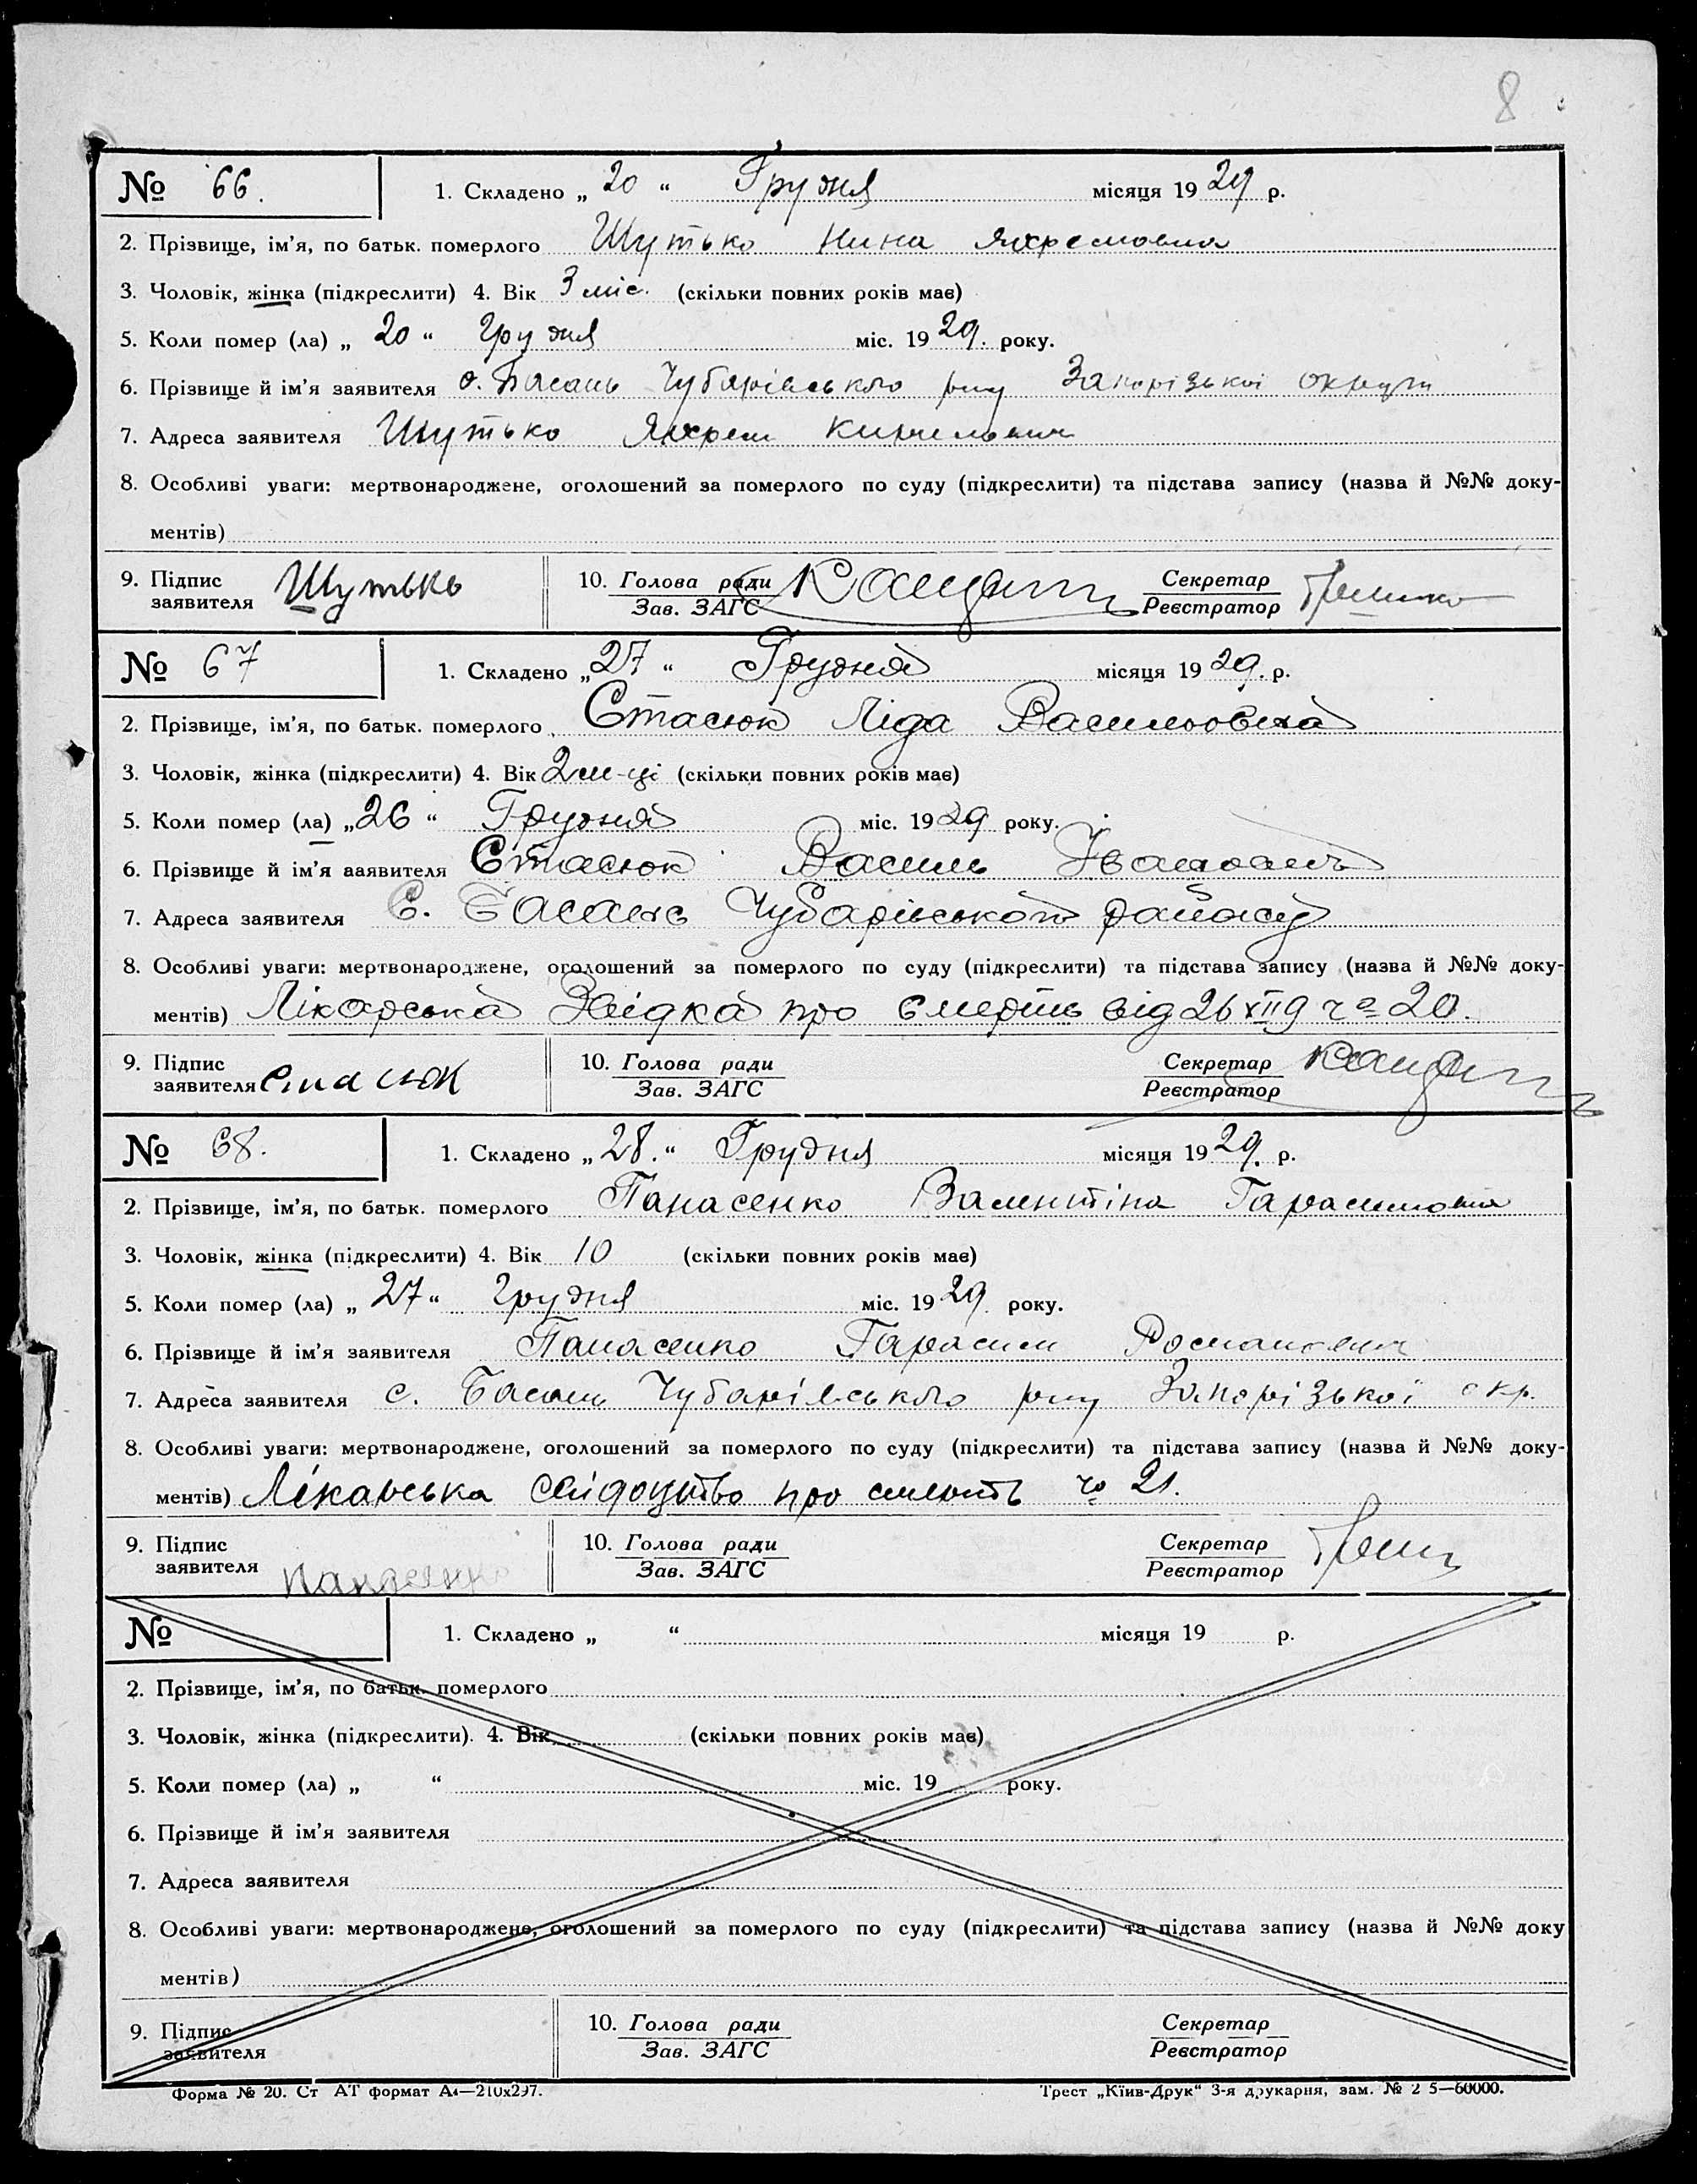 8
№ 66. 1. Складено „ 20 “ Грудня місяця 19 29 р.
2. Прізвище, ім’я, по батьк. померлого Шутько Нина
3. Чоловік, жінка (підкреслити) 4. Вік 3 міс. (скільки повних років має)
5. Коли помер (ла) „ 20 “ Грудня міс. 19 29. року.
6. Прізвище й ім’я заявителя с. Басань Чубарівського р-ну Запорізької округи
7. Адреса заявителя Шутько
8. Особливі уваги: мертвонароджене, оголошений за померлого по суду (підкреслити) та підстава запису (назва й №№ доку-
ментів)
9. Підпис заявителя Шутько 10. Голова ради Зав. ЗАГС Секретар Реєстратор
№ 67 1. Складено „ 27 “ Грудня місяця 19 29. р.
2. Прізвище, ім’я, по батьк. померлого Стасюк Ліда Васильовна
3. Чоловік, жінка (підкреслити) 4. Вік 2 м-ці (скільки повних років має)
5. Коли помер (ла) „ 26 “ Грудня міс. 19 29 року.
6. Прізвище й ім’я заявителя Стасюк Василь Іванович
7. Адреса заявителя С. Басань Чубарівського району
8. Особливі уваги: мертвонароджене, оголошений за померлого по суду (підкреслити) та підстава запису (назва й №№ доку-
ментів) Лікарська Звідка про смерть від 26 XII 9 № 20.
9. Підпис заявителя Стасюк 10. Голова ради Зав. ЗАГС Секретар Реєстратор
№ 68. 1. Складено „ 28. “ Грудня місяця 19 29. р.
2. Прізвище, ім’я, по батьк. померлого Панасенко Валентіна Гарасимовна
3. Чоловік, жінка (підкреслити) 4. Вік 10 (скільки повних років має)
5. Коли помер (ла) „ 27 “ Грудня міс. 19 29 року.
6. Прізвище й ім’я заявителя Панасенко Гарасим Романович
7. Адреса заявителя с. Басань Чубарівського р-ну Запорізької окр.
8. Особливі уваги: мертвонароджене, оголошений за померлого по суду (підкреслити) та підстава запису (назва й №№ доку-
ментів) Лікарська свідоцтво про смерть № 21.
9. Підпис заявителя Панасенко 10. Голова ради Зав. ЗАГС Секретар Реєстратор
№ 1. Складено „ “ місяця 19 р.
2. Прізвище, ім’я, по батьк. померлого
3. Чоловік, жінка (підкреслити). 4. Вік (скільки повних років має)
5. Коли помер (ла) „ “ міс. 19 року.
6. Прізвище й ім’я заявителя
7. Адреса заявителя
8. Особливі уваги: мертвонароджене, оголошений за померлого по суду (підкреслити) та підстава запису (назва й №№ доку
ментів)
9. Підпис заявителя 10. Голова ради Зав. ЗАГС Секретар Реєстратор
Форма № 20. Ст АТ формат А4—210х297. Трест „Київ-Друк“ 3-я друкарня, зам. № 2 5—60000.